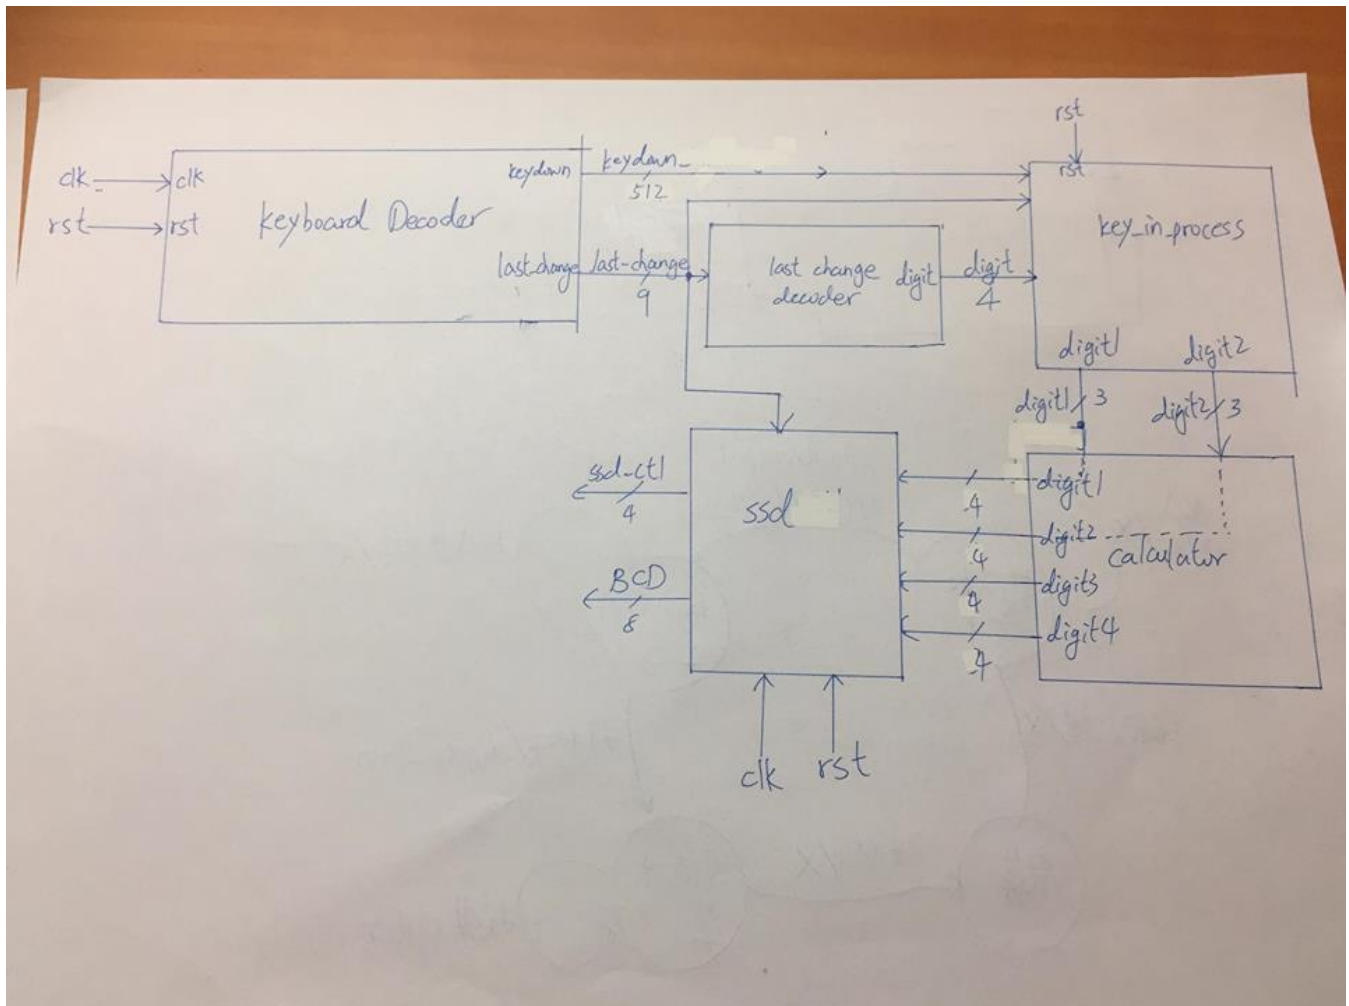 rst
clk
clk
rst
rst
keyboard Decoder
keydown
keydown_
512
last_change
last-change
9
last change
decoder
digit
digit
4
rst
key_in_process
digit1
digit2
digit1
3
digit2
3
ssd_ctl
4
BCD
8
ssd
4
4
4
4
digit1
digit2
digit3
digit4
calculator
clk
rst